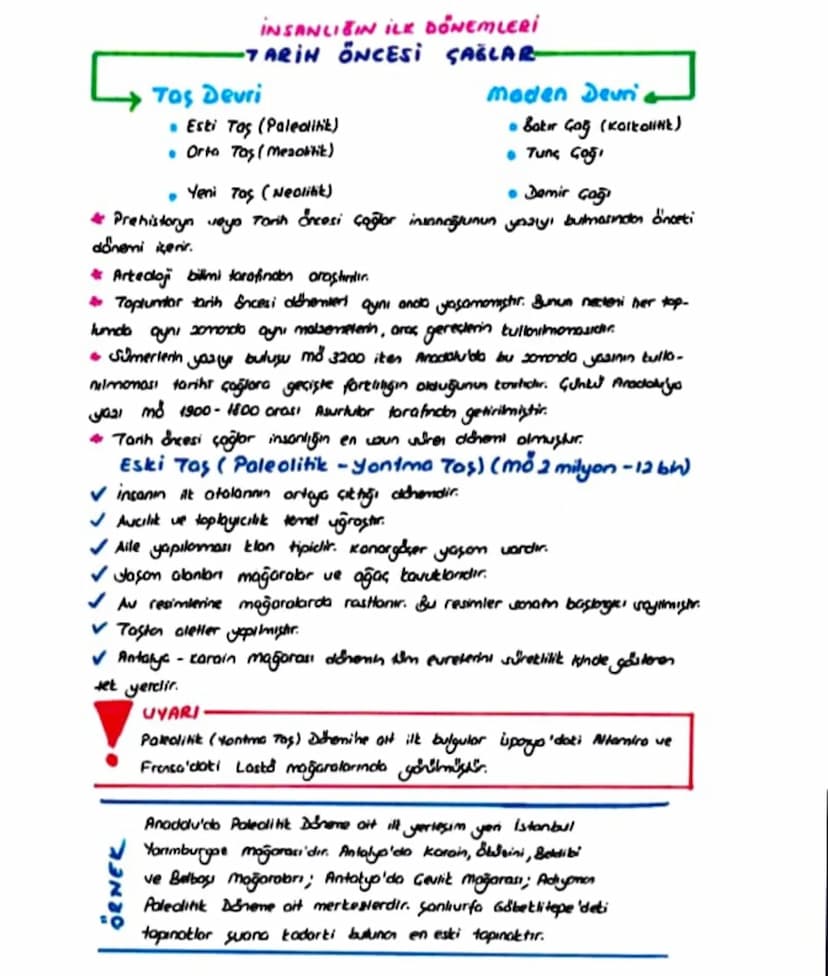 İNSANLIĞIN İLK DÖNEMLERİ
TARİH ÖNCESİ ÇAĞLAR
Taş Devri
Maden Devri
• Eski Taş (Paleolitik)
• Bakır Çağ (Kalkolitik)
• Orta Taş (Mezolitik)
• Tunç Çağı
• Yeni Taş (Neolitik)
• Demir Çağı
* Prehistorya veya Tarih Öncesi Çağlar insanoğlunun yazıyı bulmasından önceki
dönemi içerir.
* Arkeoloji bilimi tarafından araştırılır.
* Toplumlar tarih öncesi dönemleri aynı anda yaşamamıştır. Bunun nedeni her top-
lumda aynı zamanda aynı malzemelerin, araç gereçlerin kullanılmamasıdır.
* Sümerlerin yazıyı buluşu MÖ 3200 iken Anadolu'da bu zamanda yazının kulla-
nılmaması tarihi çağlara geçişte farklılığın olduğunun kanıtıdır. Çünkü Anadoluya
yazı MÖ 1900-1800 arası Asurlular tarafından getirilmiştir.
* Tarih öncesi çağlar insanlığın en uzun süren dönemi olmuştur.
Eski Taş (Paleolitik - Yontma Taş) (MÖ 2 milyon - 12 bin)
✓ İnsanın ilk atalarının ortaya çıktığı dönemdir.
✓ Avcılık ve toplayıcılık temel uğraştır.
✓ Aile yapılanması klan tipidir. Konargöçer yaşam vardır.
✓ Yaşam alanları mağaralar ve ağaç kavuklarıdır.
✓ Av resimlerine mağaralarda rastlanır. Bu resimler sanatın başlangıcı sayılmıştır.
✓ Taştan aletler yapılmıştır.
✓ Antalya - Karain mağarası dönemin tüm evrelerini süreklilik içinde gösteren
tek yerdir.
! UYARI
Paleolitik (Yontma Taş) Dönemine ait ilk bulgular İspanya'daki Altamira ve
Fransa'daki Laskö mağaralarında görülmüştür.
ÖRNEK
Anadolu'da Paleolitik Döneme ait ilk yerleşim yeri İstanbul
Yarımburgaz mağarası'dır. Antalya'da Karain, Öküzini, Beldibi
ve Belbaşı Mağaraları; Antalya'da Cevlik Mağarası; Adıyaman
Paleolitik Döneme ait merkezlerdir. Şanlıurfa Göbeklitepe'deki
tapınaklar şuana kadarki bulunan en eski tapınaktır.